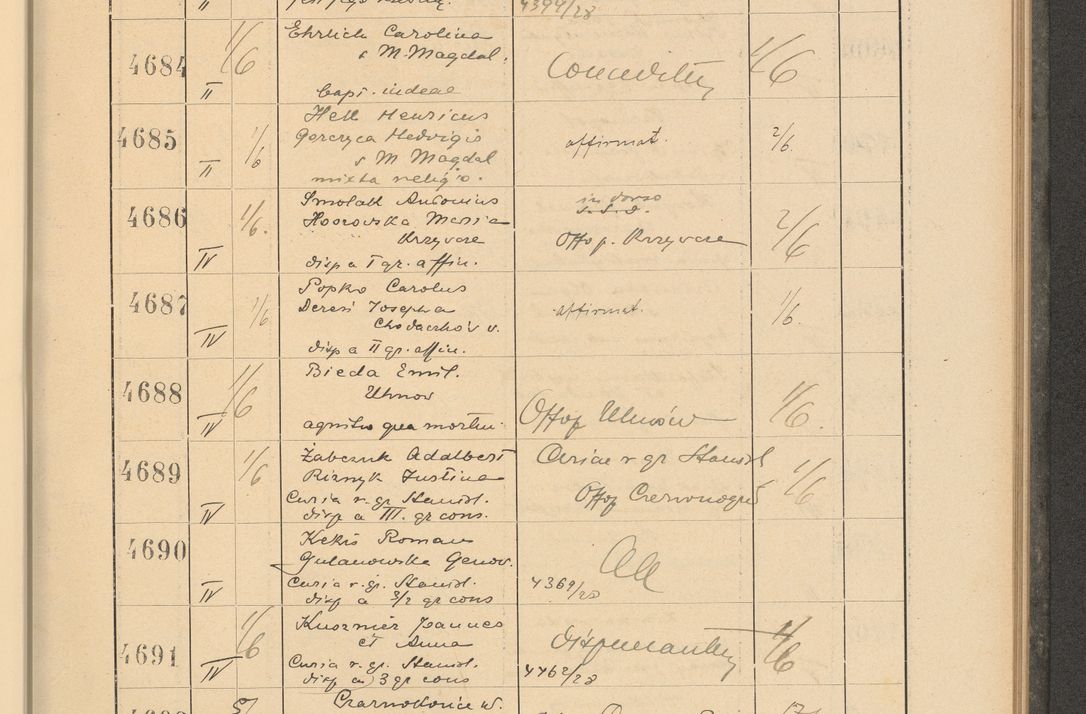 II
4399/28
4684
II
1/6
Ehrlich Carolina
s M. Magdal.
bapt. iudeae
1/6
4685
II
1/6
Hell Henricus
Gorczyca Hedvigis
s M Magdal
mixta religio.
affirmat.
2/6.
4686
IV
1/6.
Smolak Antonius
Maria
Krzywcze
disp a I gr. affin.
in dorso
Offo p. Krzywcze
2/6
4687
IV
1/6
Popko Carolus
Deresi Josepha
Chodaczków w.
disp a II gr. affin.
affirmat.
1/6.
4688
IV
11/6
Bieda Emil.
Uhnow
agnitio qua mortui.
Offop Uhnów
1/6.
4689
IV
1/6
Żabczuk Adalbert
Riznyk Justina
Curia r. gr Stanisl.
disp a III. gr cons.
Curiae r gr Stanisl
Offop Czerwonogród
1/6
4690
IV
Kekis Roman
Gulanowska Genow.
Curia r. gr. Stanisl.
disp a 3/2 gr cons
Aa
4369/28
4691
IV
11/6
Kuszmier Joannes
et Anna
Curia r. gr. Stanisl.
disp a 3 gr cons
4462/28
4/6
Czarnokonce w.